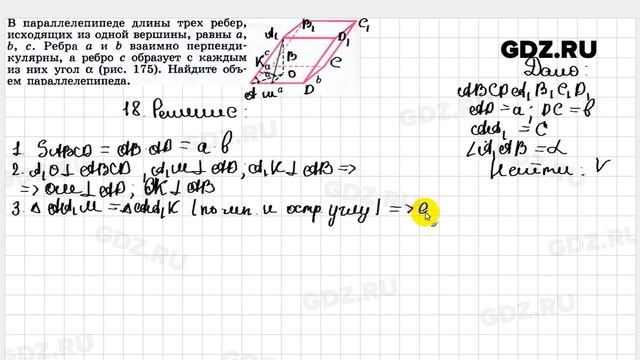 В параллелепипеде длины трех ребер,
исходящих из одной вершины, равны a,
b, c. Ребра a и b взаимно перпенди-
кулярны, а ребро c образует с каждым
из них угол α (рис. 175). Найдите объ-
ем параллелепипеда.
A₁ B₁ C₁ D₁
K c B C
α O
A M a D b
GDZ.RU
Дано:
ABCDA₁B₁C₁D₁
AD=a; DC=b
AA₁=C
∠A₁AB=α
Найти: V
18. Решение:
1. SABCD = AB·AD = a·b
2. A₁O⊥ABCD, A₁M⊥AD; A₁K⊥AB =>
=> OM⊥AD; OK⊥AB
3. △AA₁M = △AA₁K (по гип. и остр углу) =>
GDZ.RU
GDZ.RU
GDZ.RU
GDZ.RU